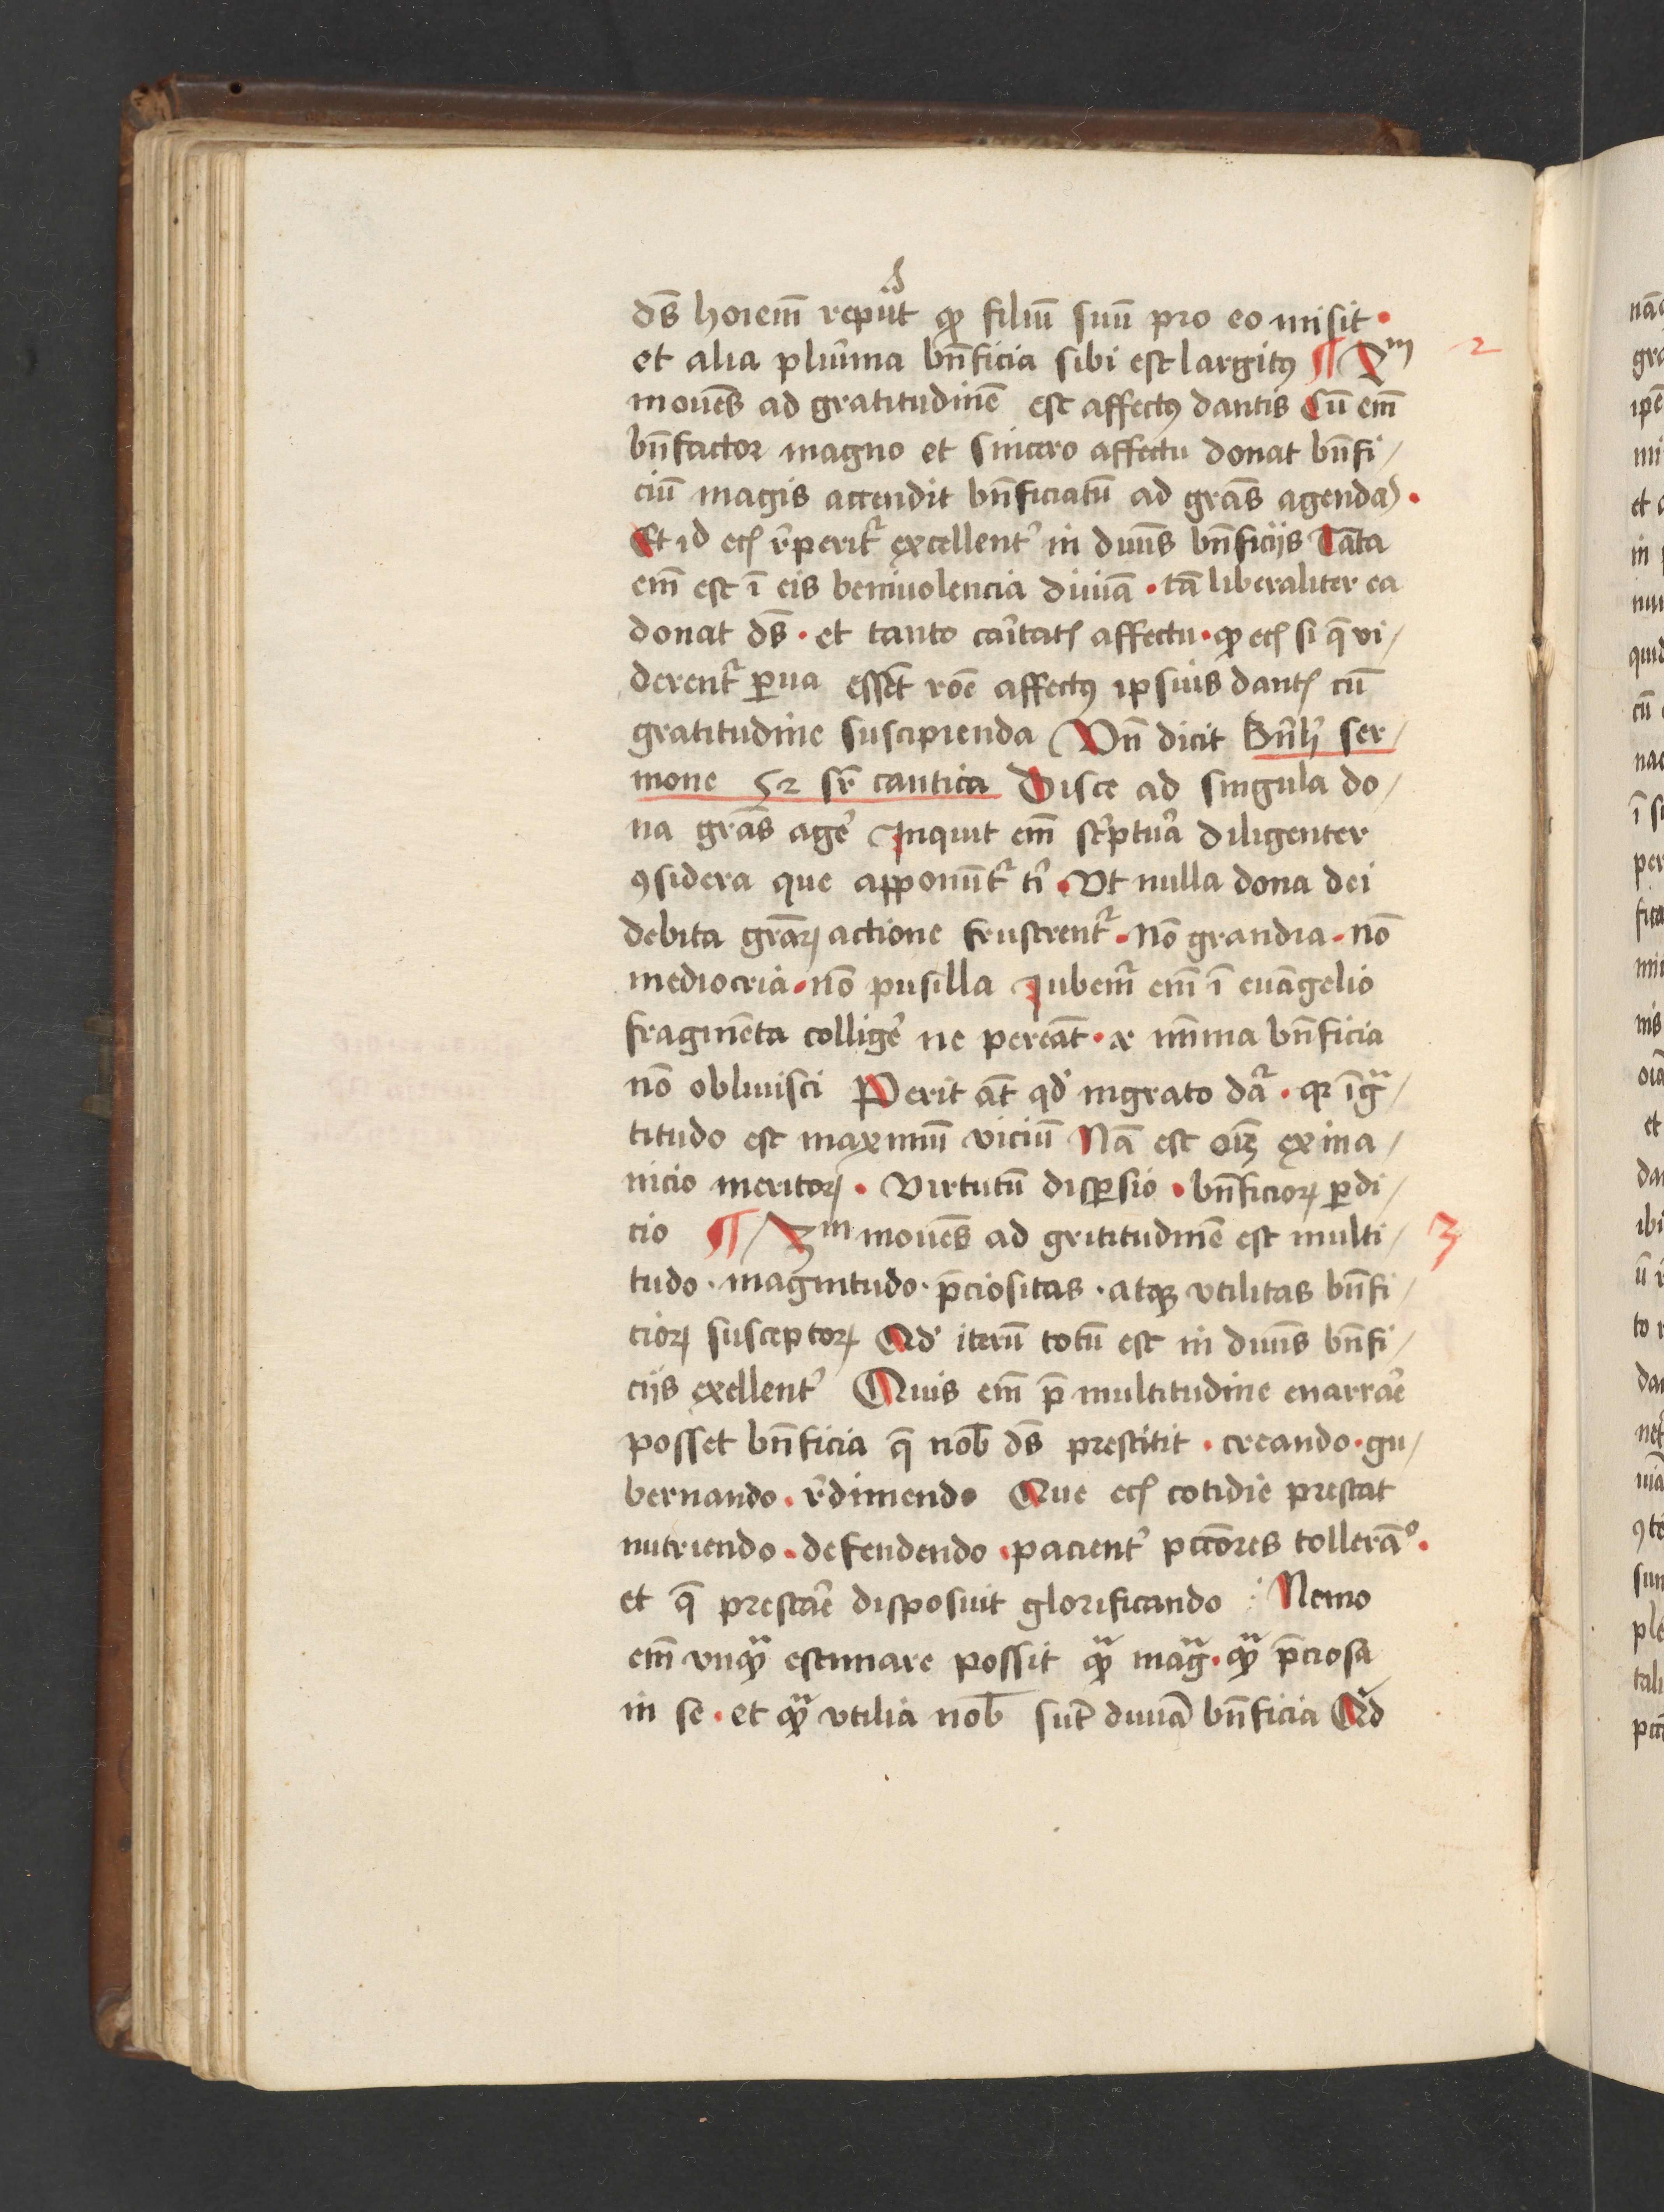 ds̄ hoīem reputͣt ꝙ filiū suū pro eo misit ·
et alia plurīma bn̄ficia sibi est largitꝰ ¶ 2ᵐ 2
mouēs ad gratitudinē est affectꝰ dantis Cū em̄
bn̄factor magno et sincero affectu donat bn̄fi/
ciū magis accendit bn̄ficiatū ad grās agendas ·
Et id ecꝫ reperitᷣ excellentᷣ in diuīs bn̄ficijs Tāta
em̄ est ī eis beniuolencia diuīa · tā liberaliter ea
donat ds̄ · et tanto cāritatꝭ affectu · ꝙ ecꝫ si q̄ vi/
derentᷣ ꝑua essēt rōe affectꝰ ipsius dantꝭ cū
gratitudine suscipienda Vn̄ dicit Bn̄hᷣ ser/
mone 52 sr̄ cantica Disce ad singula do/
na grās agẽ Inquit em̄ sc̄ptura diligenter
ꝯsidera que apponūtᷣ tⁱ · Vt nulla dona dei
debita grāꝝ actione frustrentᷣ · nō grandia · nō
mediocria · nō pusilla Iubemᷣ em̄ ī euāgelio
fragmēta colligẽ ne pereāt · & mīma bn̄ficia
nō obliuisci Perit āt qd ingrato daᷣ · qꝛ īgͣ/
titudo est maximū viciū Nā est oīꝫ exina/
nicio meritoꝝ · Virtutū disꝑsio · bn̄ficioꝝ ꝑdi/
cio ¶ 3ᵐ mouēs ad grititudinē est multi/ 3
tudo · magnitudo · p̄ciositas · atqꝫ vtilitas bn̄fi/
cioꝝ susceptoꝝ Qd iterū totū est in diuīs bn̄fi/
cijs exellentᷣ Quis em̄ p̄ multitudine enarrāe
posset bn̄ficia q̄ nob̄ ds̄ prestitit · creando · gu/
bernando · redimendo Que ecꝫ cotidie prestat
nutriendo · defendendo · pacientᷣ pccōres tollerāᵒ ·
et q̄ prestāe disposuit glorificando : Nemo
em̄ vnqͣꝫ estimare possit qͣꝫ magͣ · qͣꝫ p̄ciosa
in se · et qͣꝫ vtilia nob̄ sūt diuīa bn̄ficia Qd